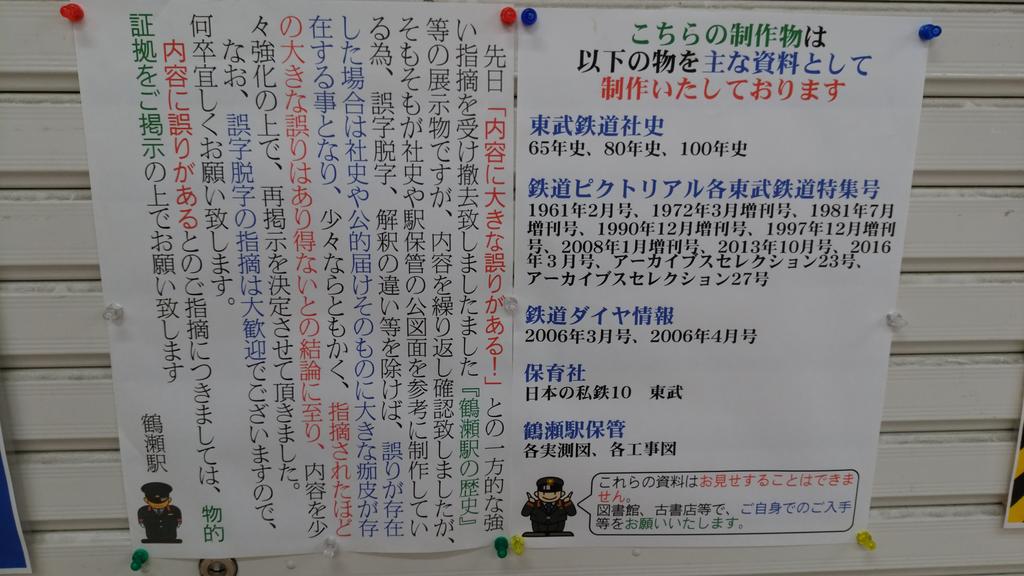 こちらの制作物は
以下の物を主な資料として
制作いたしております
東武鉄道社史
65年史、80年史、100年史
鉄道ピクトリアル各東武鉄道特集号
1961年2月号、1972年3月増刊号、1981年7月
増刊号、1990年12月増刊号、1997年12月増刊
号、2008年1月増刊号、2013年10月号、2016
年3月号、アーカイブスセレクション23号、
アーカイブスセレクション27号
鉄道ダイヤ情報
2006年3月号、2006年4月号
保育社
日本の私鉄10 東武
鶴瀬駅保管
各実測図、各工事図
これらの資料はお見せすることはできま
せん。
図書館、古書店等で、ご自身でのご入手
等をお願いいたします。
先日「内容に大きな誤りがある！」との一方的な強
い指摘を受け撤去致しましたました『鶴瀬駅の歴史』
等の展示物ですが、内容を繰り返し確認致しましたが、
そもそもが社史や駅保管の公図面を参考に制作してい
る為、誤字脱字、解釈の違い等を除けば、誤りが存在
した場合は社史や公的届けそのものに大きな痂皮が存
在する事となり、少々ならともかく、指摘されたほど
の大きな誤りはあり得ないとの結論に至り、内容を少
々強化の上で、再掲示を決定させて頂きました。
なお、誤字脱字の指摘は大歓迎でございますので、
何卒宜しくお願い致します。
内容に誤りがあるとのご指摘につきましては、物的
証拠をご掲示の上でお願い致します
鶴瀬駅